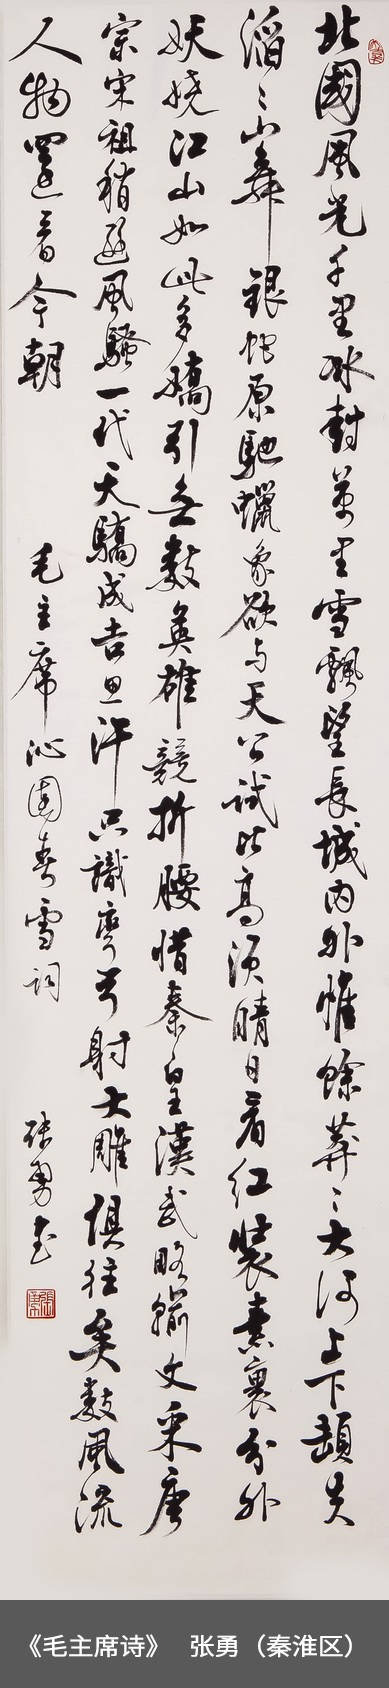 北國風光千里冰封萬里雪飄望長城内外惟餘莽〻大河上下頓失
滔〻山舞銀蛇原馳蠟象欲与天公試比高須晴日看红裝素裹分外
妖娆江山如此多嬌引无數英雄競折腰惜秦皇漢武略输文采唐
宗宋祖稍遜風騷一代天驕成吉思汗只識彎弓射大雕俱往矣數風流
人物還看今朝
毛主席沁園春雪词
张勇书
《毛主席诗》 张勇（秦淮区）